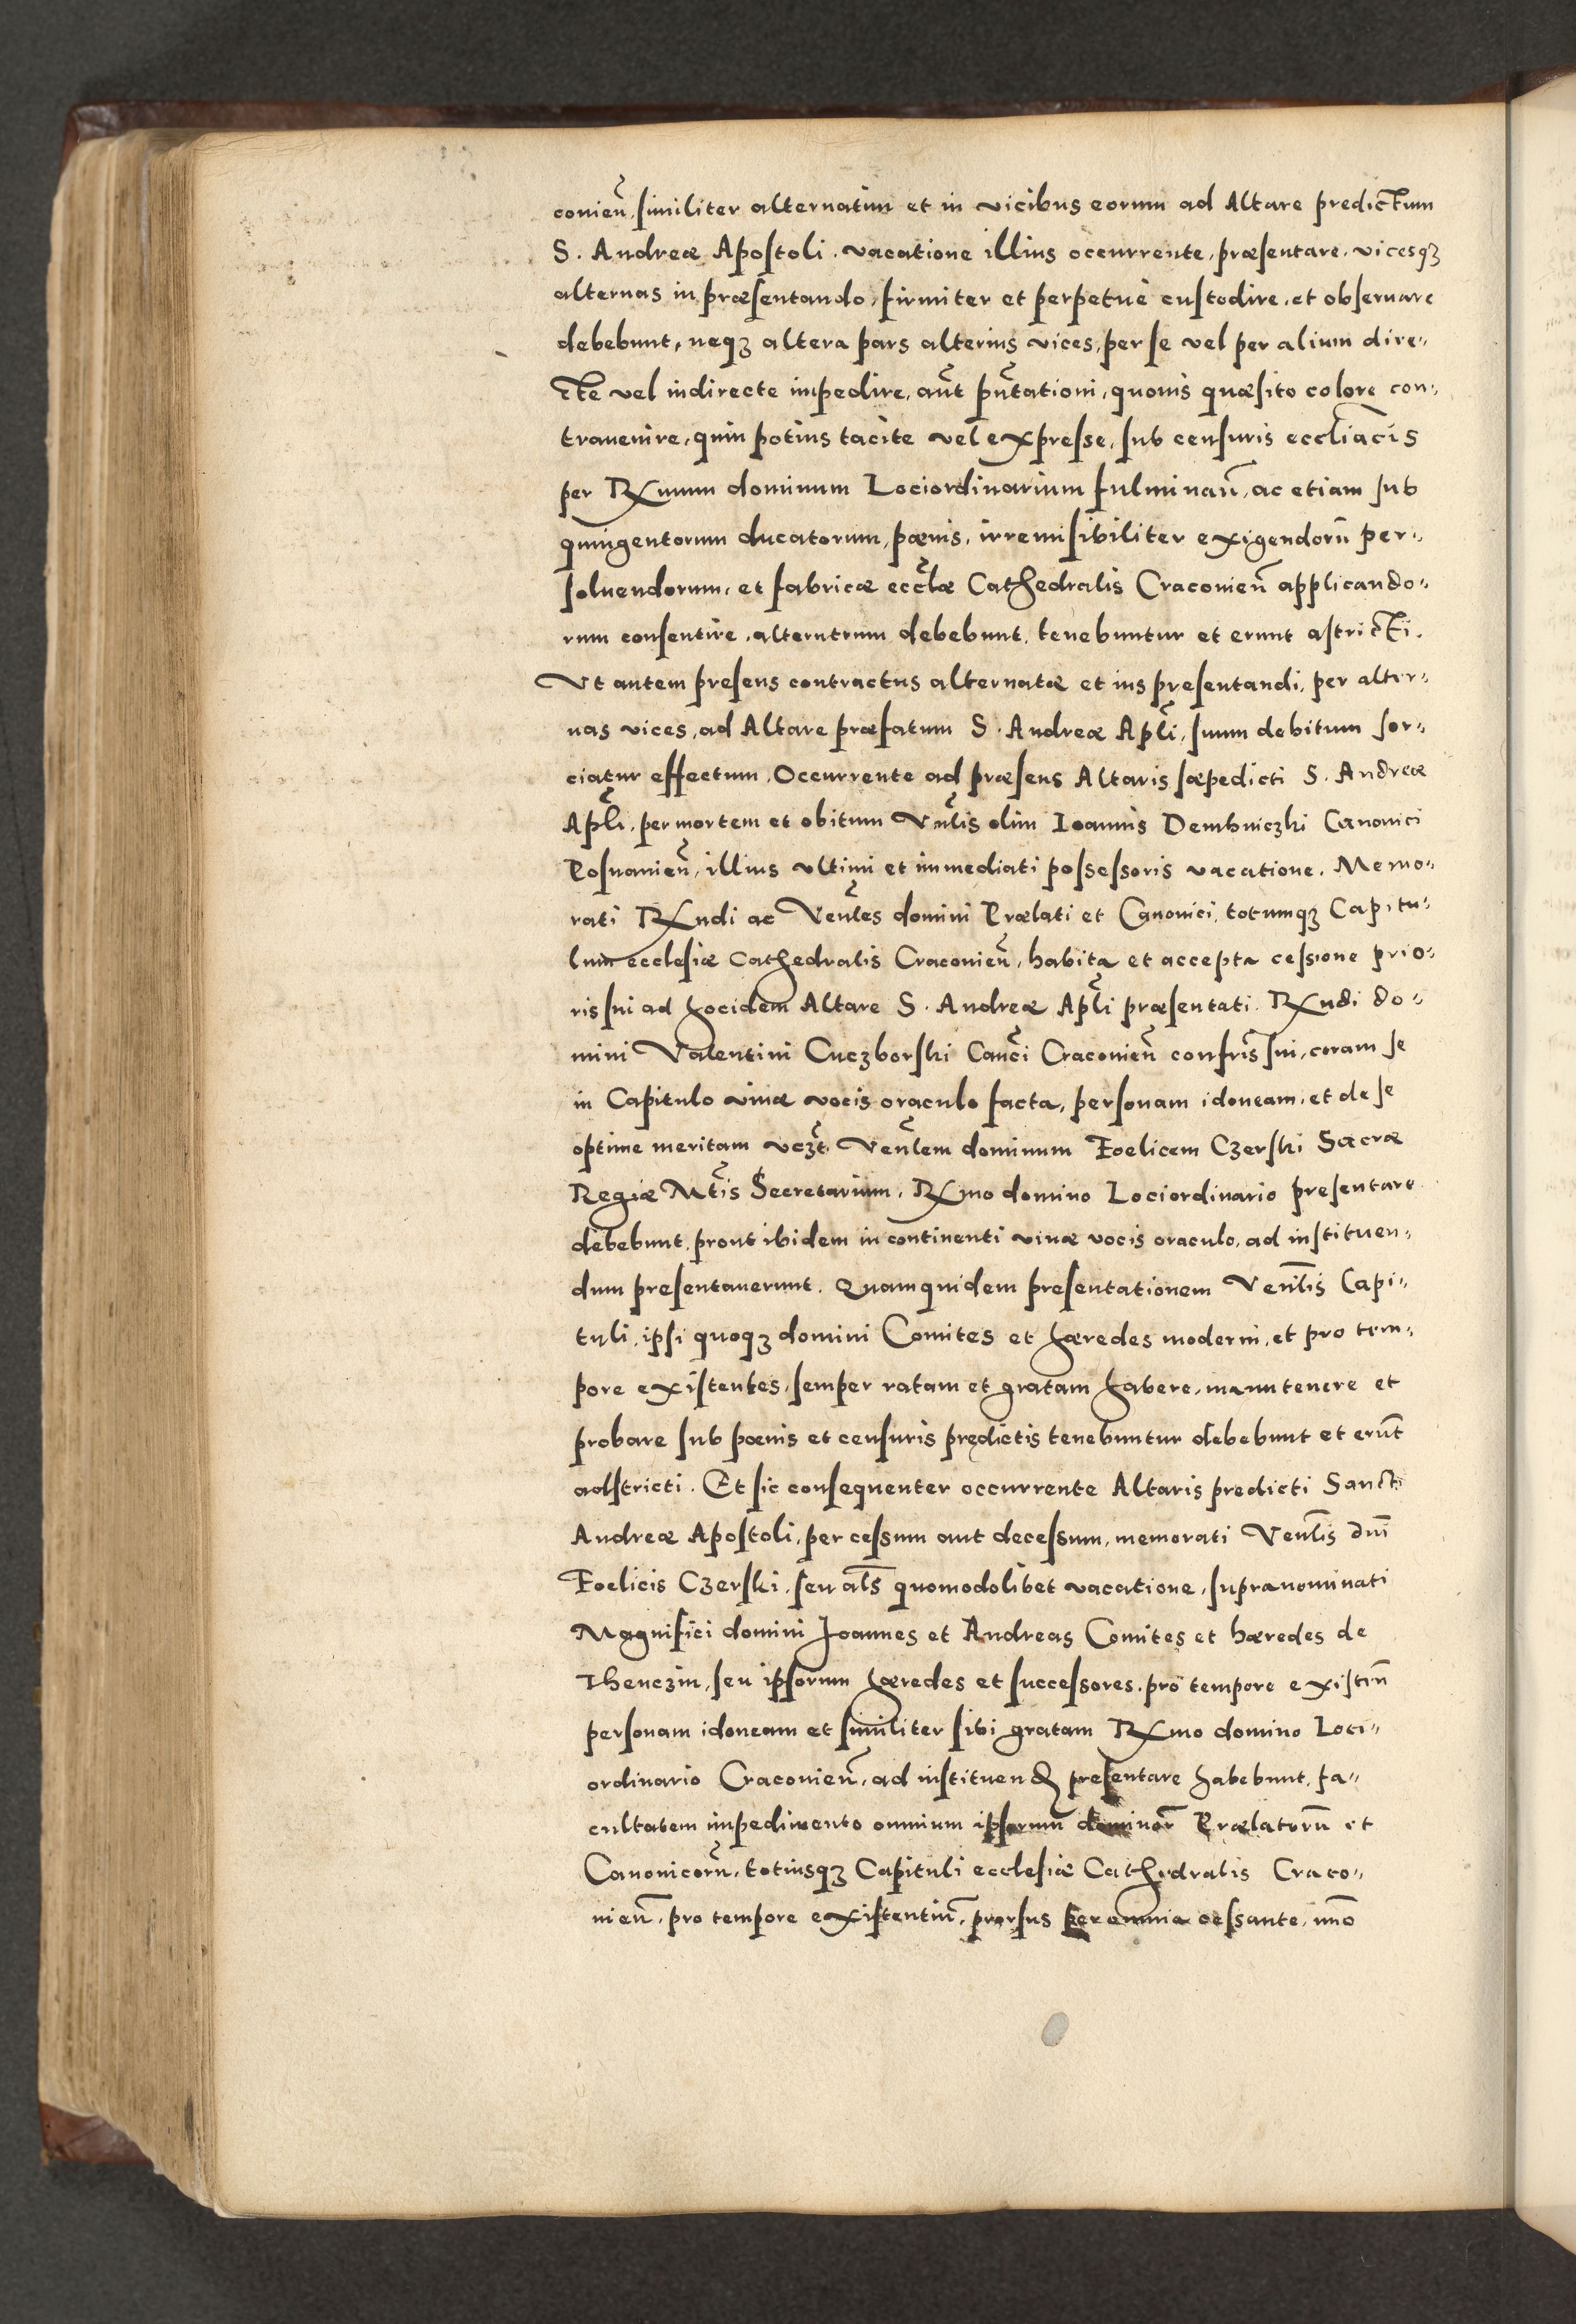 conien̄, similiter alternatim et in vicibus eorum ad Altare predictum
S. Andreæ Apostoli. vacatione illius occurrente, præsentare, vicesqꝫ
alternas in præsentando, firmiter et perpetuè custodire, et obseruare
debebunt, neqꝫ altera pars alterius vices, per se vel per alium dire„
cte vel indirecte impedire, aut̄ pn̄tationi, quouis quæsito colore con„
trauenire, quin potius tacite vel expresse, sub censuris eccl̄iacis
per Rx̄mum dominum Lociordinarium fulminan̄, ac etiam sub
quingentorum ducatorum, pœnis, irremisibiliter exigendorū per„
soluendorum, et fabricæ eccl̄æ Cathedralis Craconien̄ applicando„
rum consentire, alterutrum debebunt, tenebuntur et erunt astricti.
Vt autem presens contractus alternatæ et ius presentandi, per alter„
nas vices, ad Altare præfatum S. Andreæ Apl̄i, suum debitum sor„
ciatur effectum, Occurrente ad præsens Altaris sæpedicti S. Andreæ
Apl̄i, per mortem et obitum Vn̄lis olim Ioannis Dembniczki Canonici
Posnanien̄, illius vltimi et immediati possessoris vacatione. Memo„
rati Rx̄ndi ac Ven̄les domini Prælati et Canonici, totumqꝫ Capitu„
lum ecclesiæ Cathedralis Craconien̄, habita et accepta cessione prio„
ris sui ad hocidem Altare S. Andreæ Apl̄i præsentati. Rx̄ndi do„
mini Valentini Cuczborski Canc̄i Craconien̄ confr̄is sui, coram se
in Capitulo viuæ vocis oraculo facta, personam idoneam, et de se
optime meritam vcꝫt. Ven̄lem dominum Foelicem Czerski Sacræ
Regiæ Mt̄is Secretarium, Rx̄mo domino Lociordinario presentare
debebunt, prout ibidem in continenti viuæ vocis oraculo, ad instituen„
dum presentauerunt. Quamquidem presentationem Ven̄lis Capi„
tuli, ipsi quoqꝫ domini Comites et hæredes moderni, et pro tem„
pore existentes, semper ratam et gratam habere, manutenere et
probare sub pœnis et censuris prędictis tenebuntur debebunt et erūt
adstricti. Et sic consequenter occurrente Altaris predicti Sancti
Andreæ Apostoli, per cessum aut decessum, memorati Ven̄lis dn̄i
Foelicis Czerski, seu al̄s quomodolibet vacatione, supranominati
Magnifici domini Joannes et Andreas Comites et hæredes de
Thenczin, seu ipsorum hæredes et successores, pro tempore existen̄
personam idoneam et similiter sibi gratam Rx̄mo domino Loci„
ordinario Craconien̄, ad instituend̄ presentare habebunt, fa„
cultatem impedimento omnium ipsorum̄ dominor̄ Prælatorū et
Canonicorū, totiusqꝫ Capituli ecclesiæ Cathedralis Craco„
nien̄, pro tempore existentiū, prorsus per omnia cessante, im̄o